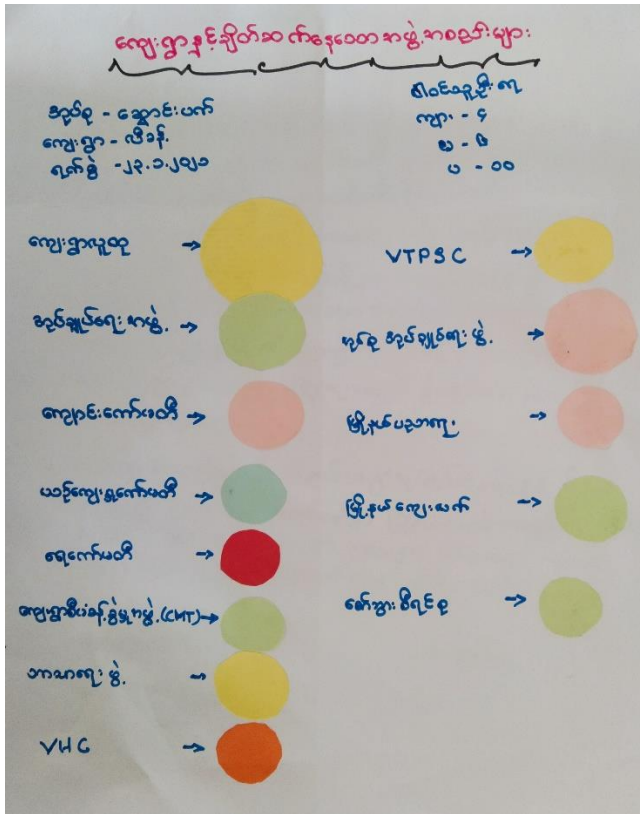 ကျေးရွာနှင့်ချိတ်ဆက်နေသောအဖွဲ့အစည်းများ
အုပ်စု - ဆွောင်းပက်
ကျေးရွာ - လီခန့်
ရက်စွဲ - ၂၃.၁.၂၀၂၁
ပါဝင်သူဦးရေ
ကျား - ၄
မ - ၆
ပ - ၁၀
ကျေးရွာလူထု →
အုပ်ချုပ်ရေးအဖွဲ့ →
ကျောင်းကော်မတီ →
ယဉ်ကျေးမှုကော်မတီ →
ရေကော်မတီ →
ကျေးရွာစီမံခန့်ခွဲမှုအဖွဲ့ (CMT) →
ဘာသာရေးဖွဲ့ →
VHC →
VTPSC →
အုပ်စု အုပ်ချုပ်ရေးဖွဲ့ →
မြို့နယ်ပညာရေး →
မြို့နယ်ကျေးလက် →
မော်အွားစီရင်စု →